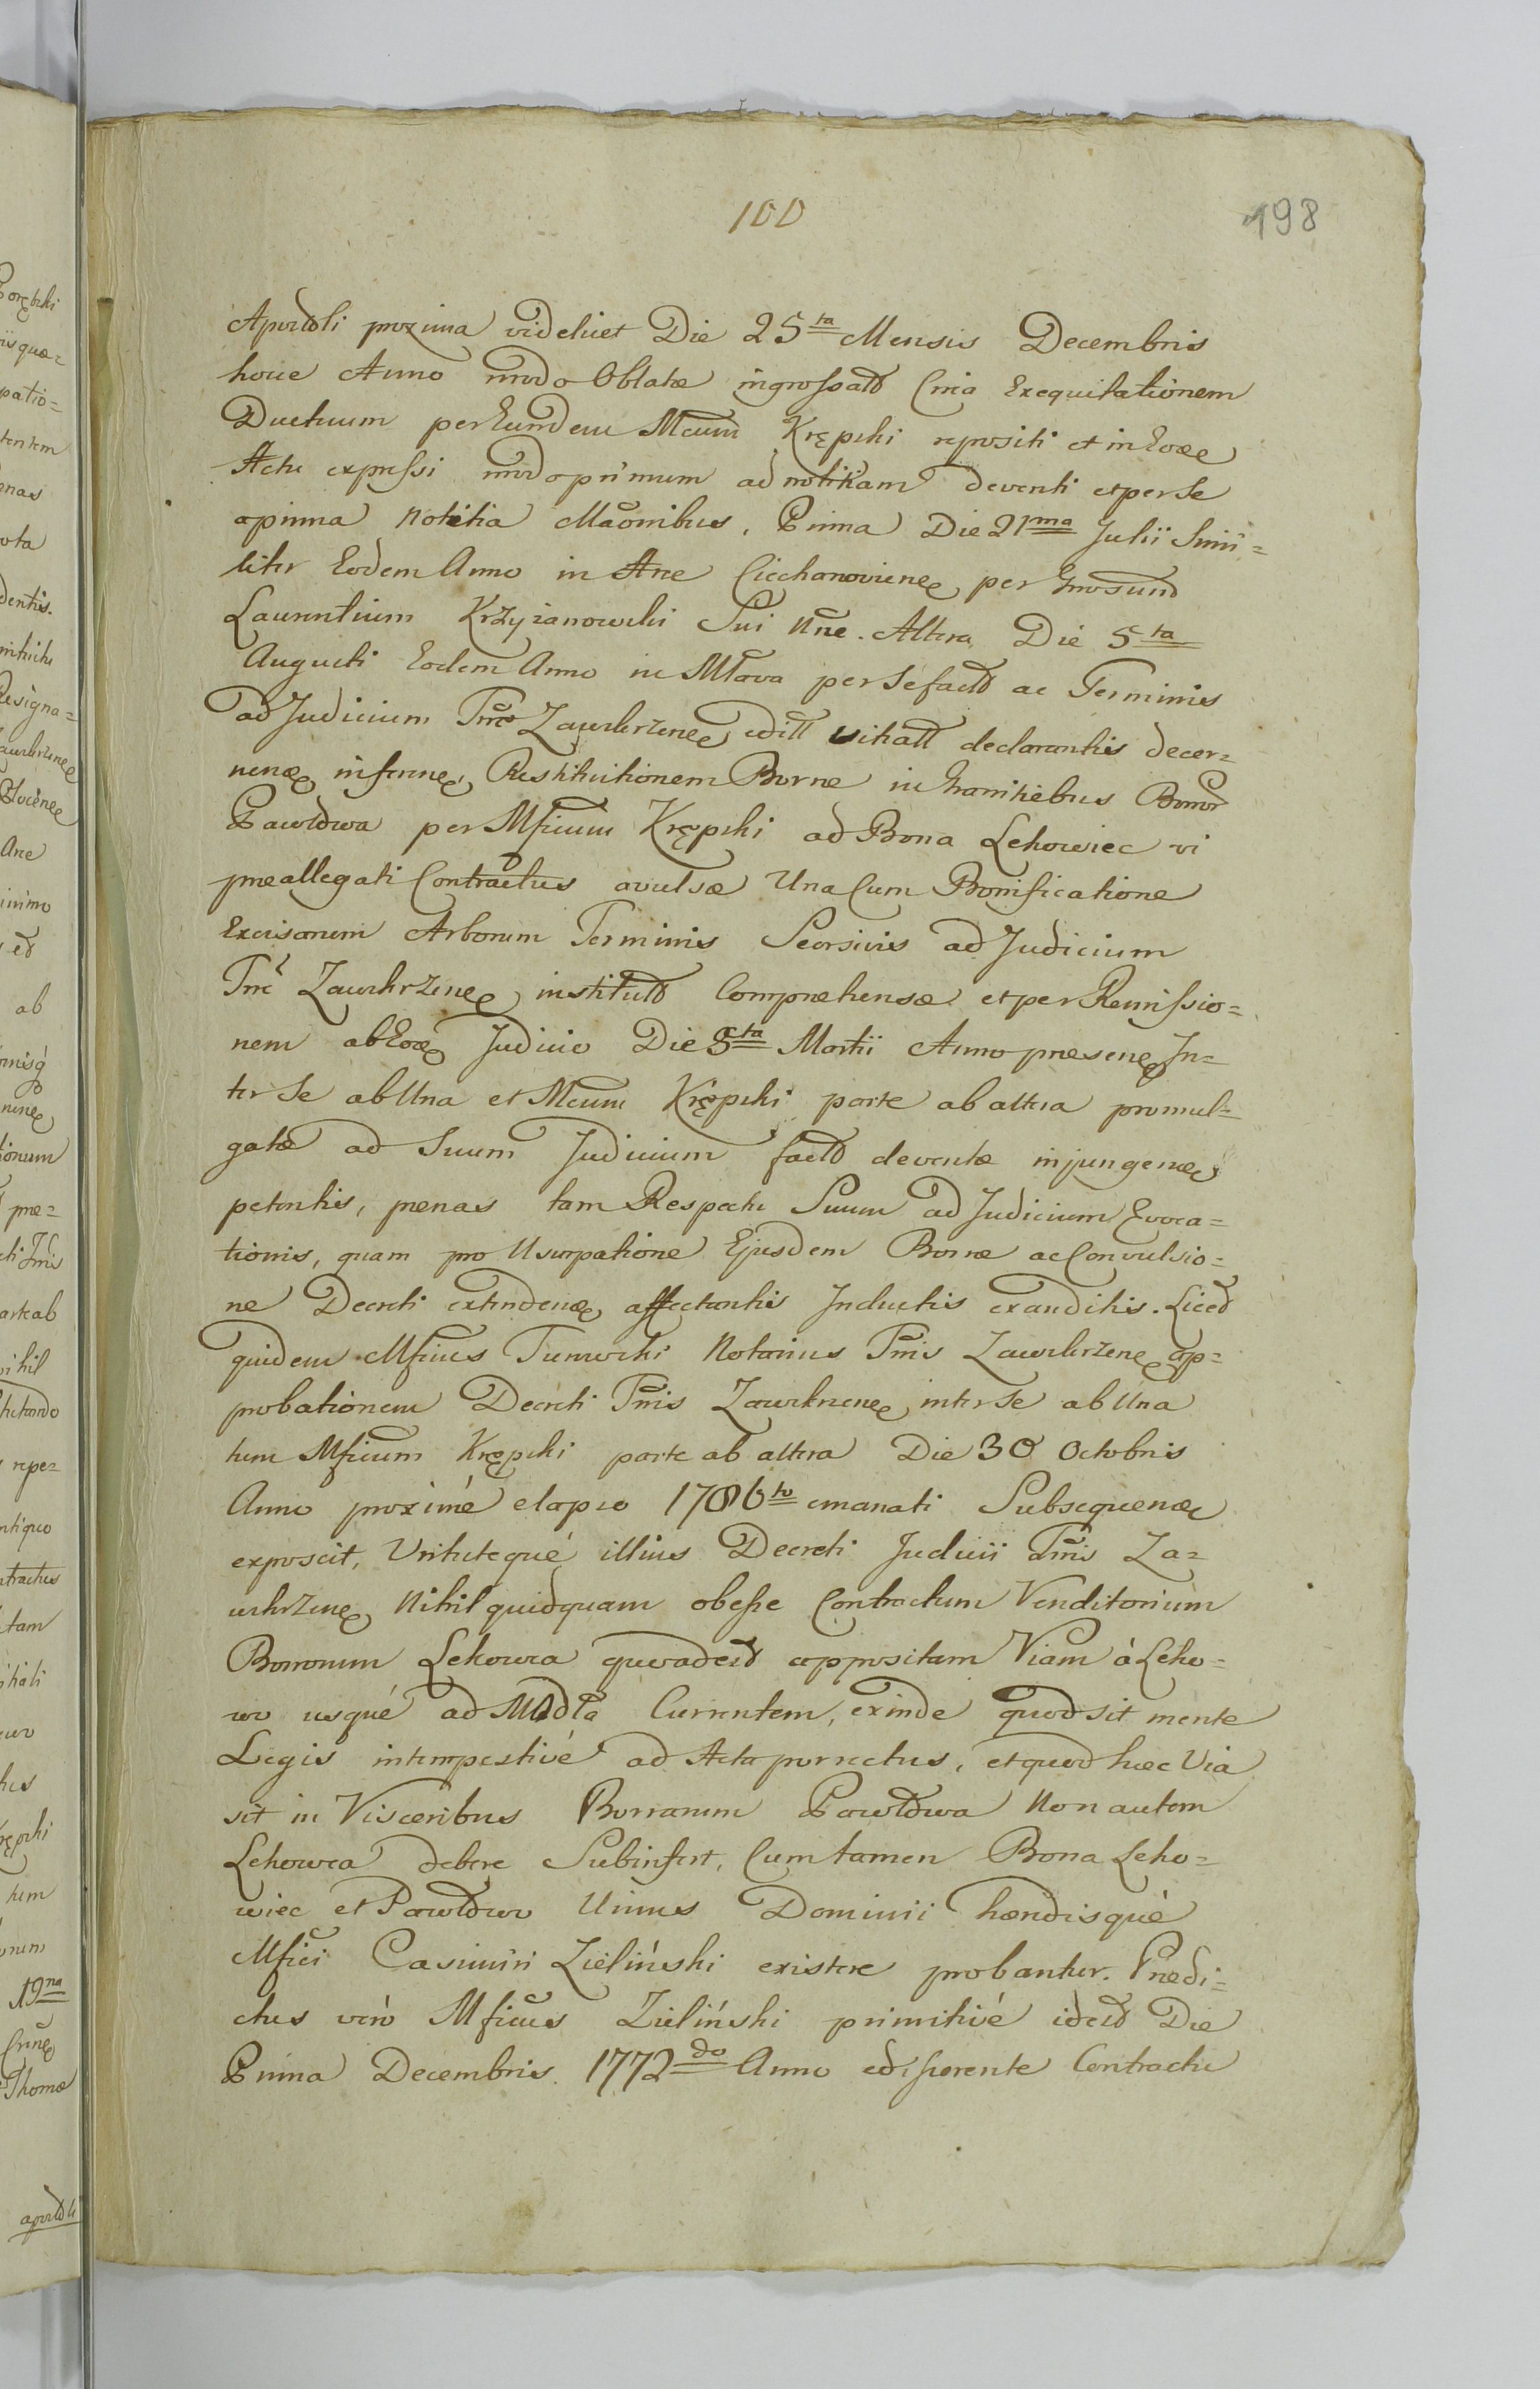 100
198
Apostoli proxima videlicet Die 25ta Mensis Decembris
hocce Anno modo Oblatæ ingrossatð Circa Exequitationem
Ductuum per Eundem Mcum Krępski repositi et in Eoæ
Actu expressi modo primum ad notitiam deventi et per Se
a prima Notitia Mãonibus, Prima Die 21ma Julii Simi=
liter Eodem Anno in Ane Ciechanoviene per Gnosum
Laurentium Krzyżanowski Sui Nne. Altera Die 5ta
Augusti Eodem Anno in Mława per Se factð ac Terminis
ad Judicium Trrē Zawkrzene editt citatt declarantis decer=
nenæ insenne, Restitutionem Borræ in Granitiebus Bonor
Pawłowa per Mficum Krępski ad Bona Lekowiec vi
præallegati Contractus avulsæ Una Cum Bonificatione
Excisarum Arborum Terminis Seorsivis ad Judicium
Trrē Zawkrzene institutð Comprehensæ et per Remissio=
nem ab Eoæ Judicio Die 5ta Martii Anno præsene In=
ter Se ab Una et Mcum Krępski parte ab altera promul=
gatæ ad Suum Judicium factð deventæ injungenæ
petentis, pænas tam Respectu Suum ad Judicium Evoca=
tionis, quam pro Usurpatione Ejusdem Borræ ac Convulsio=
ne Decreti extendenæ affectantis Inductis exauditis. Licet
quidem Mficus Turowski Notarius Trris Zawkrzene ap=
probationem Decreti Trris Zawkrzene inter Se ab Una
tum Mficum Krępski parte ab altera Die 30 Octobris
Anno proximé elapso 1786to emanati Subsequenæ
exposcit, Virtutequé illius Decreti Judicii Trris Za=
wkrzene Nihil quidquam obesse Contractum Venditorium
Bonorum Lekowca quoad eið appositam Viam à Leko=
wo usqué ad Modła Currentem, exinde quod sit mente
Legis intempestivé ad Acta porrectus, et quod hæc Via
sit in Visceribus Borrarum Pawłowa Non autem
Lekowca debere Subinfert, Cum tamen Bona Leko=
wiec et Pawłowo Unius Dominii hærdisqué
Mfici Casimiri Zieliński existere probantur. Prædi=
ctus veró Mficus Zieliński primitivé ideið Die
Prima Decembris 1772do Anno edisserente Contractu